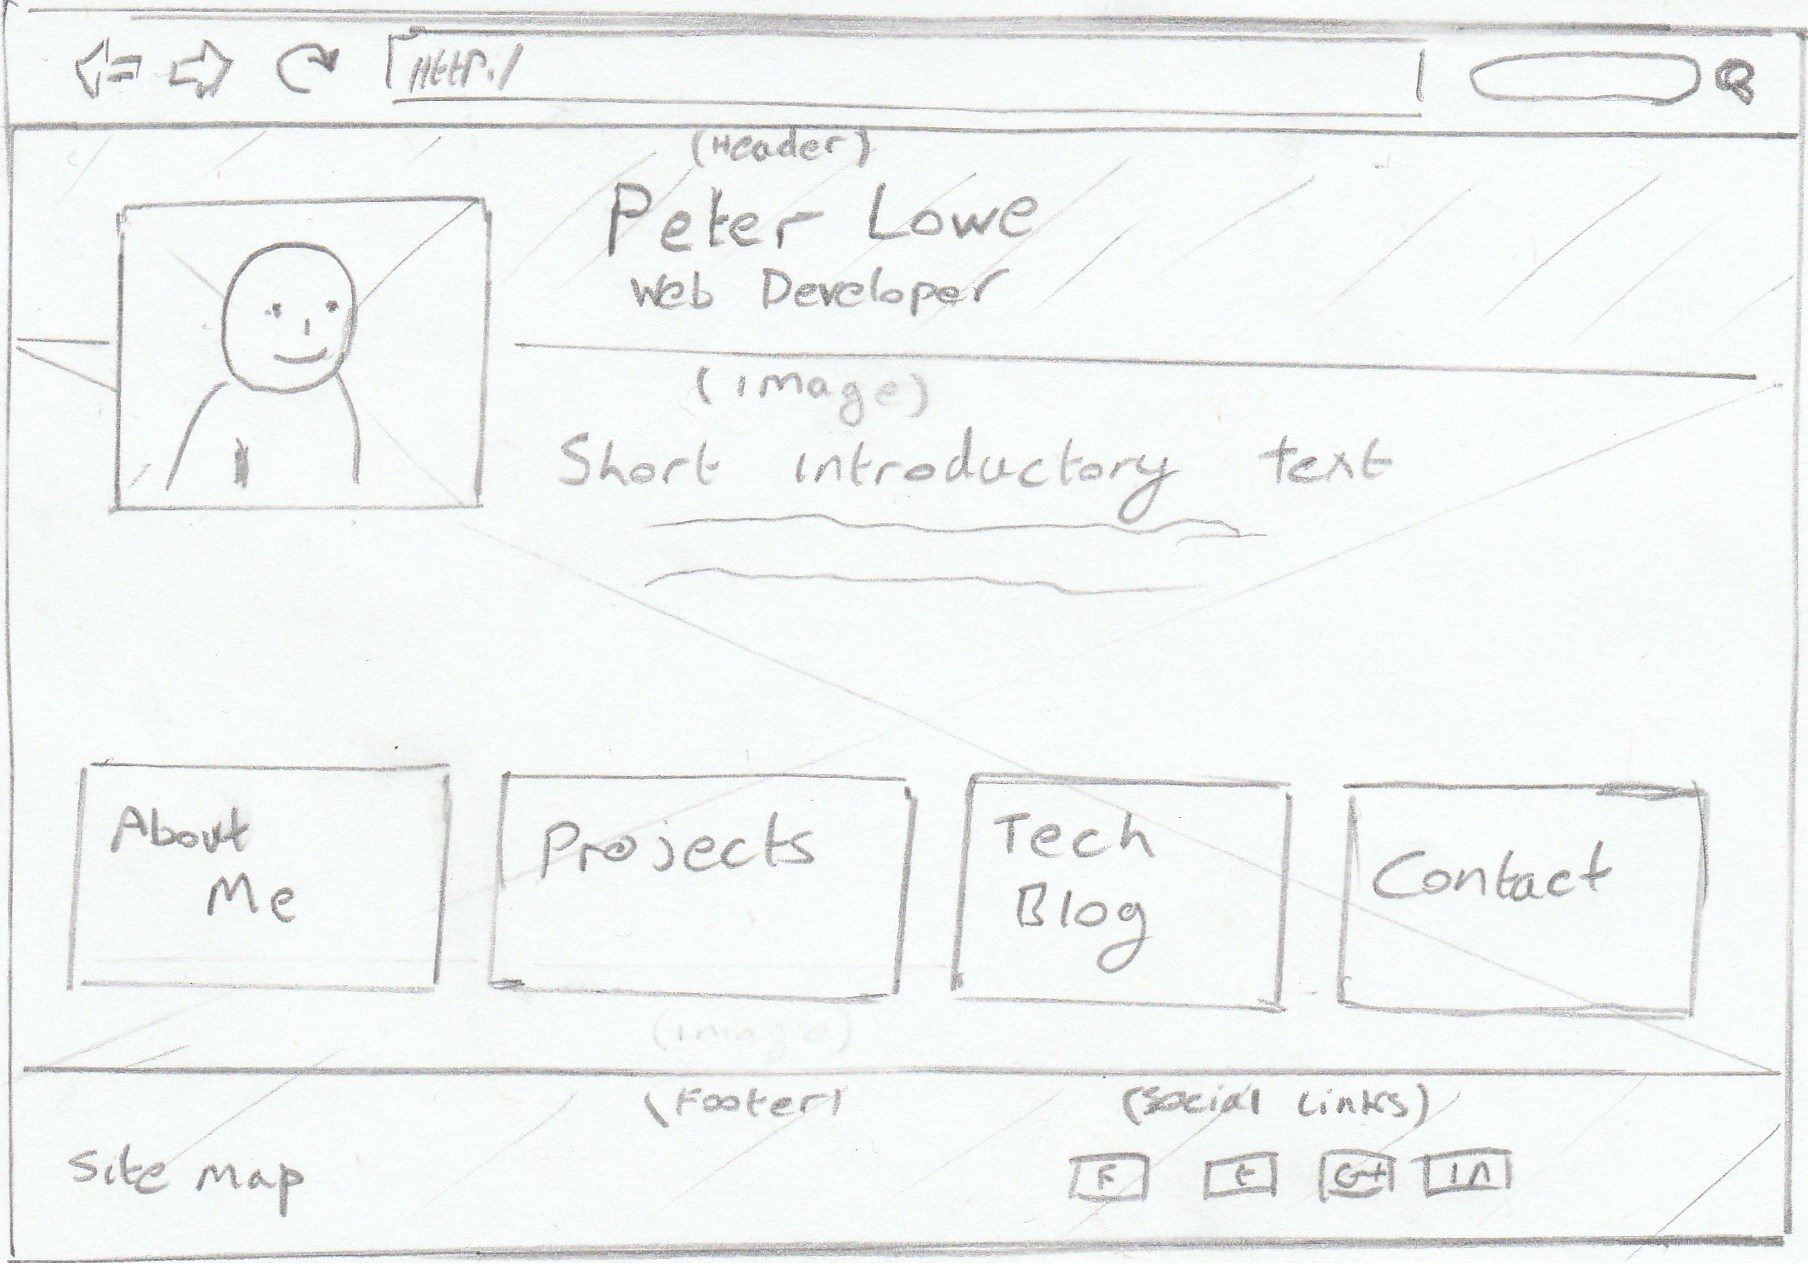 HttP:/
(Header)
Peter Lowe
Web Developer
(image)
Short introductory text
About
Me
Projects
Tech
Blog
Contact
(image)
(Footer)
(Social Links)
Site Map
F t G+ in